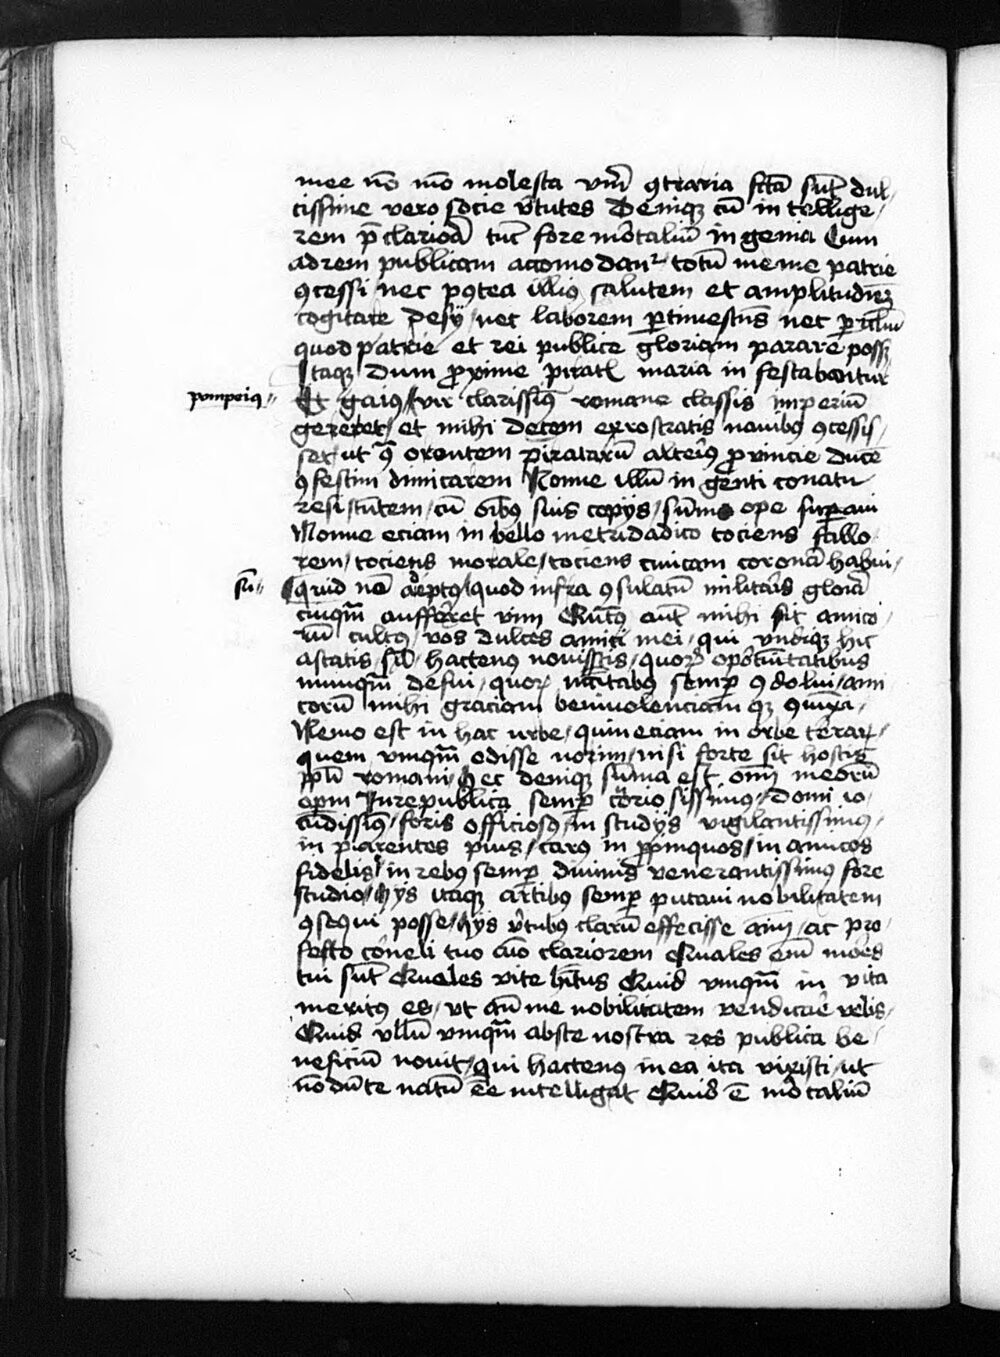 mee nō mō molesta vnī ꝯtraria fctā sūt dul-
cissime vero socie v̄tutes Deniqꝫ cū intellige-
rem p̄clariorā tūc fore mortaliū ingenia Cum
ad rem publicam accomodant᷑ totū me me patrie
ꝯcessi nec postea illiꝰ salutem et amplitudinē
cogitare desij / nec laborem ꝑtimescēs nec ꝑiclm̄
quod patrie et rei publice gloriam parare possꝫ
Itaqꝫ dum ꝓxime pirate maria infestabantur
pompeiꝰ
Et gaiꝰ / vir clarissimꝰ romane classis imperiū
gereret / et mihi decem exrostratis nauibꝰ ꝯcessis-
set / ut ꝙ orientem piratarū alteriꝰ ꝓuincie ducē
ꝯfestim dimicarem Nonne illū ingenti conatu
resistentem / cū oībꝰ suis copijs / sūma ope suꝑaui
Nonne eciam in bello metridadico tociens
rem / tociens morale / tociens ciuicam coronā habui-
sū
quid nō adeptꝰ / quod infra ꝯsulatū militaris gloriā
cuiqꝫ aufferret vim Quātꝰ aūt mihi sit amico-
rū cultꝰ / vos dulces amici mei / qui vndiqꝫ hic
astatis / sil̄ hactenꝰ nouistis / quoꝝ oportunitatibus
nunqꝫ defui / quoꝝ ncc̄itabꝰ semꝑ ꝯdolui / ami
corū mihi graciam beniuolenciam qꝫ ꝯiūxi /
Nemo est in hac vrbe / quin eciam in orbe terraꝝ /
quem vmqꝫ odisse norim / nisi forte sit hostis
ppl̄i romani / hec deniqꝫ sūma est oīm meorū
opm̄ In re publica semꝑ c̄riosissimus / domi io-
cūdissimꝰ / foris officiosꝰ / in studijs vigilantissimus /
in parentes pius / carus in ꝓpinquos / in amicos
fidelis / in rebꝰ semꝑ diuinis venerantissimus fore
studio / hijs itaqꝫ artibꝰ semꝑ putaui nobilitatem
ꝯsequi posse / hijs v̄tutibꝰ clarū effecisse aīm / ac pro-
fecto corneli tuo aīo clariorem Quales em̄ mores
tui sūt Quales vite hītus Quid vmqꝫ in vita
meritꝰ es / vt cū me nobilitatem vendicare velis /
Quid vllū vmqꝫ abs te nostra res publica be-
neficiū nouit / qui hactenꝰ in ea ita vixisti / ut
nōdū te natū ēe intelligat Quid ē mortaliū